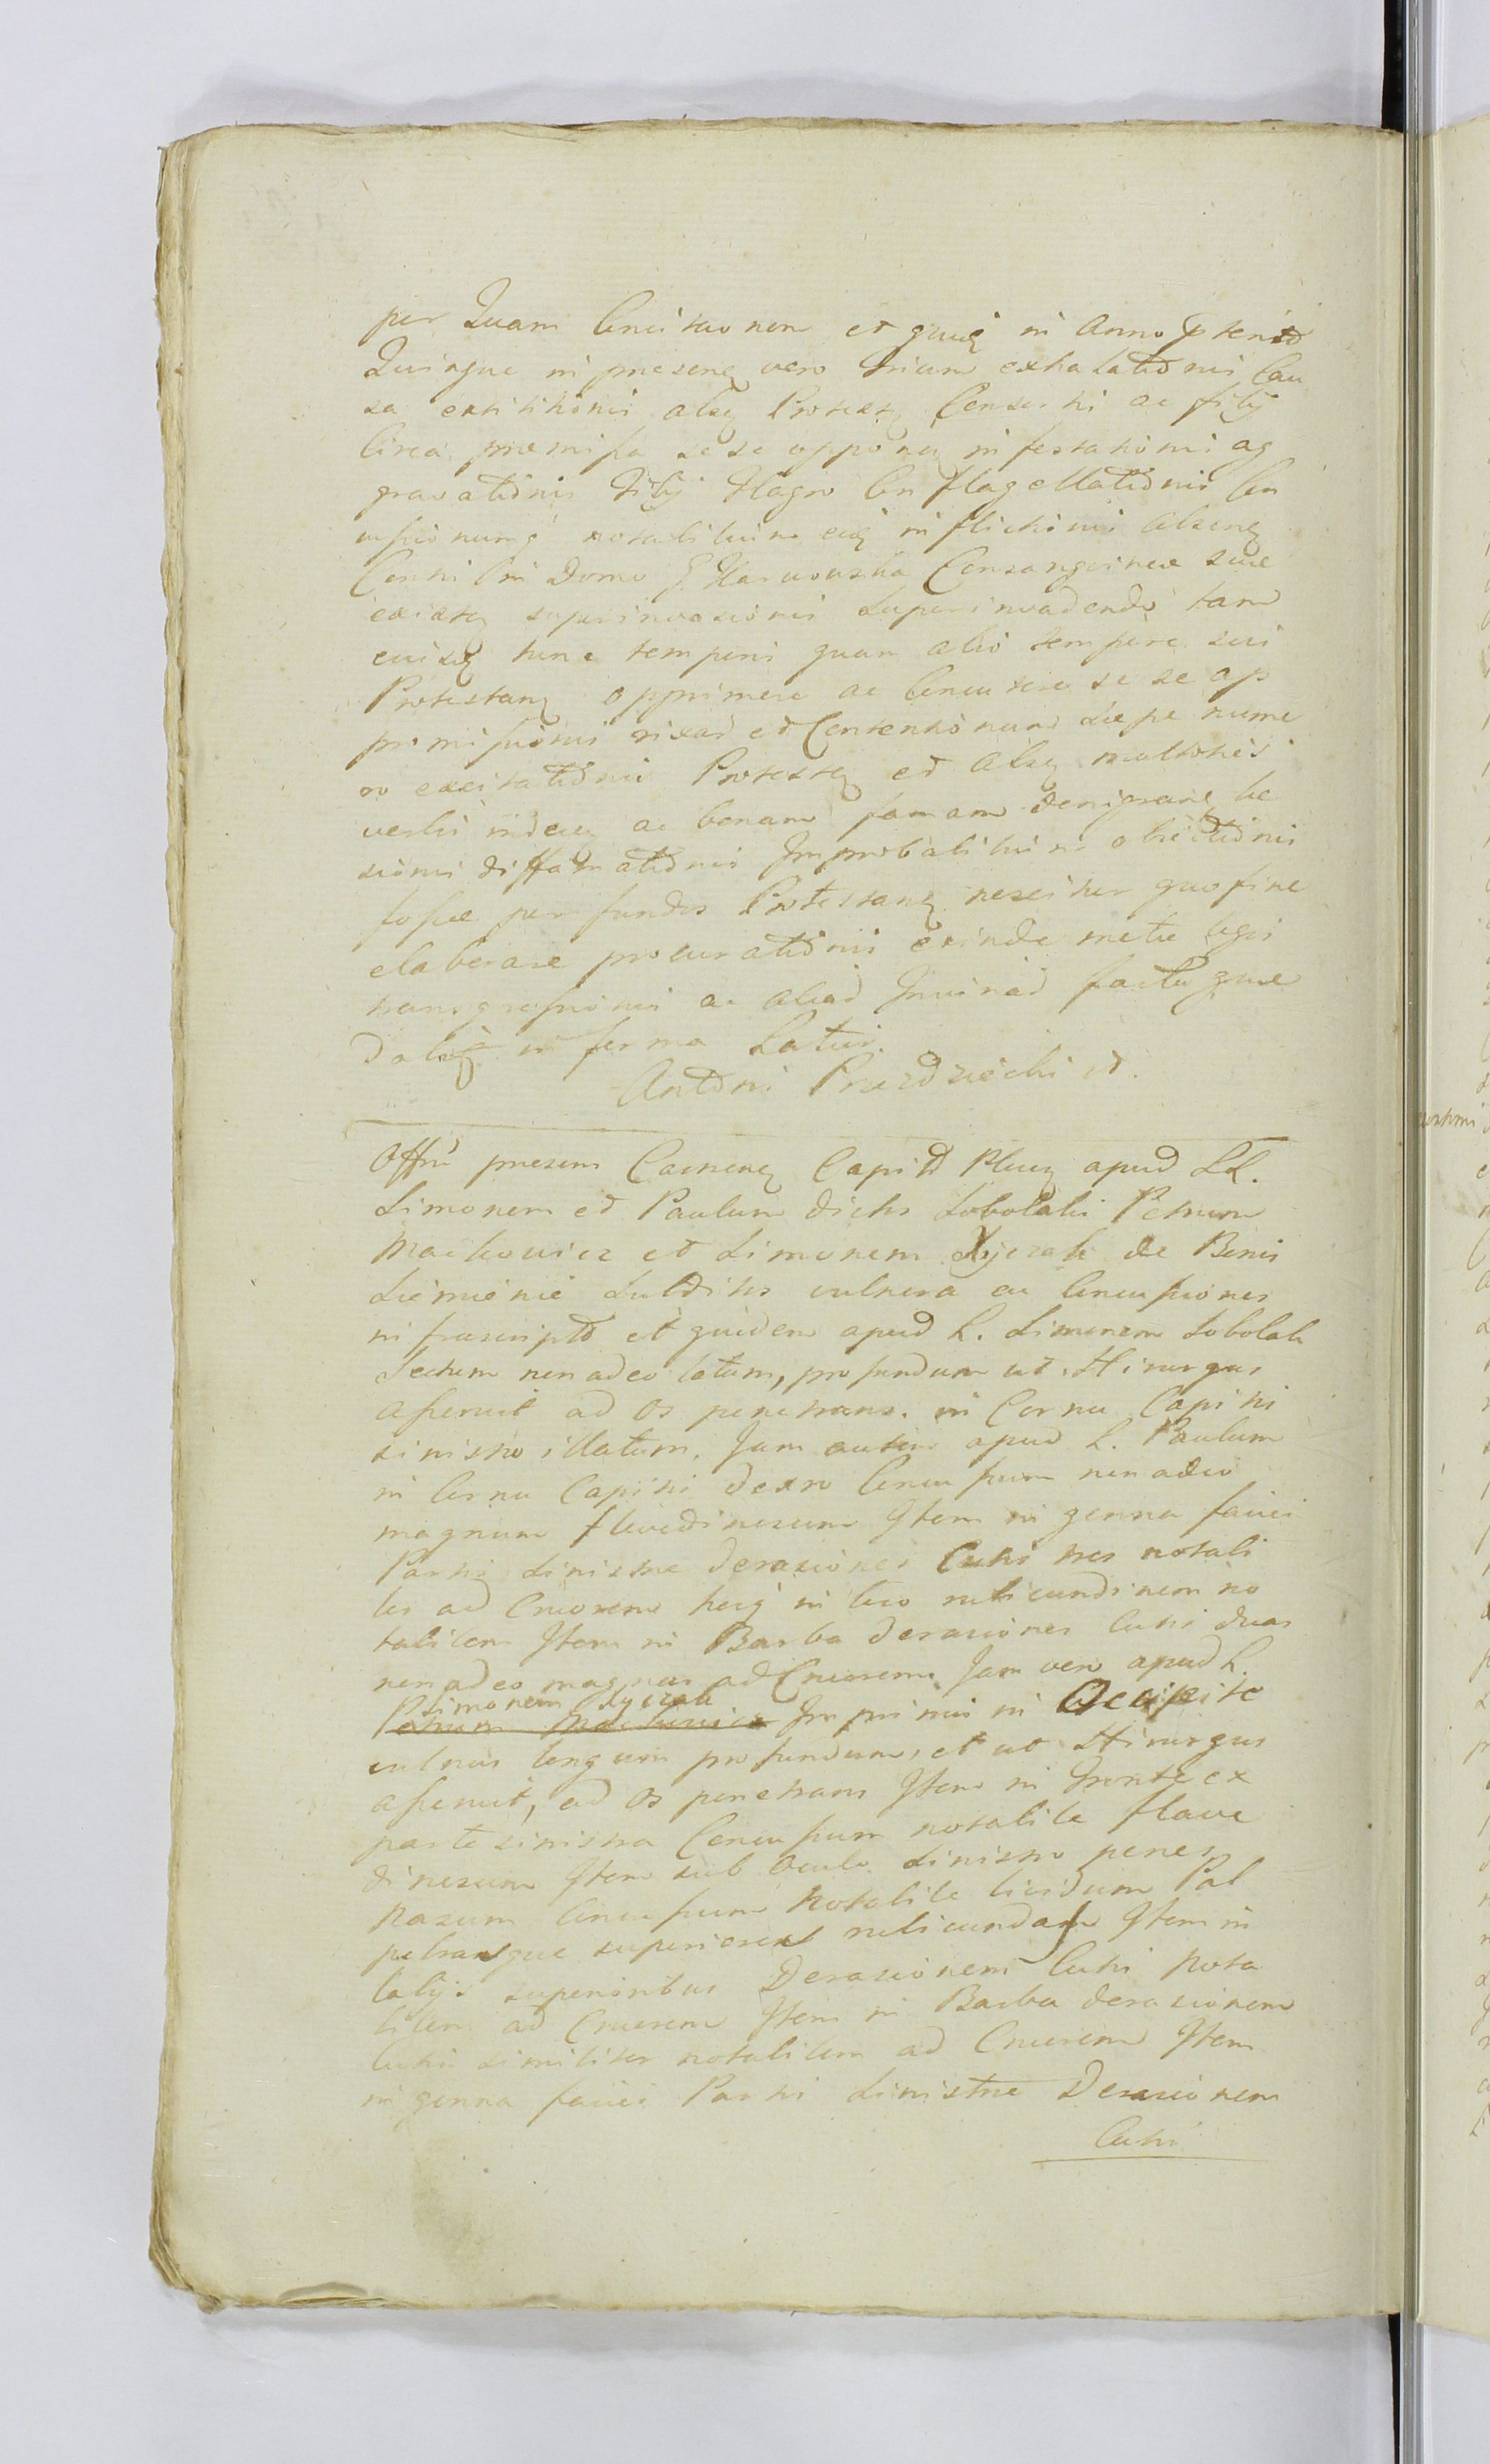 per Quam Concitaonem et quidq in Anno Pterito
Quinque in praesenq vero trium exhalationis Cau
sa extitihonis alsq Protestq Consorti ac filij
Circa praemissa se se opponen infestationis ag
gravationis filij flagro Con flagellationis Con
cussionumq notabilium eidq inflictionis absenq
Consti in Domo G Consanguineae suae
existq superinvasionis superinvadendo tam
eoisq tunc temporis quam alio tempore sui
Protestanq opprimere ac Concutere se se ap
promissionis rixar et Contentionum saepe nume
ro excitationis Protestq et alsq multories
verbis indecq ac bonam famam denigranq lae
sionis diffamationis Improbalibus obiectionis
fossae per fundos Protestanq nescitur quo fine
elaborare procurationis exinde metu legis
transgressionis ac aliad Iniuriad factq quae
dabq in forma Latius.
Antoni Pruszdziecki
Offm praesens Castrense Capit apud LL.
Simonem et Paulum dictos Sobolaki Petrum
Mackowicz et Simonem Syczak de Bonis
Siemienie Subditos vulnera ac Concussiones
infrascripto et quidem apud L. Simonem Sobolak
Sectum non adeo latum, profundum ut Hirurgus
asseruit ad os penetrans. in Cornu Capitis
sinistro illatum. Jam autem apud L. Paulum
in Cornu Capitis dextro Concussum non adeo
magnum flavedinosum Item in genna faciei
Partis sinistrae derasiones Cutis tres notabi
les ad Cruorem heiq in loco rubicundinem no
tabilem Item in Barba derasiones Cutis duas
non adeo magnas ad Cruorem. Jam vero apud L.
Simonem Syczak
Petrum Mackowicz Inprimis in Occipite
vulnus longum profundum, et ut Hirurgus
asseruit, ad os penetrans Item in fronte ex
parte sinistra Concussum notabile flave
dinosum Item sub oculo sinistro penes
nasum Concussum notabile lividum Pal
pebramque superiorem rubicundam Item in
labijs superioribus Derasionem Cutis nota
bilem ad Cruorem Item in Barba derasionem
Cutis similiter notabilem ad Cruorem Item
in genna faciei Partis sinistrae Derasionem
Cutis